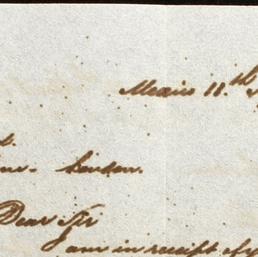 Mexico 18th
London.
Dear Sir
I am in receipt of y